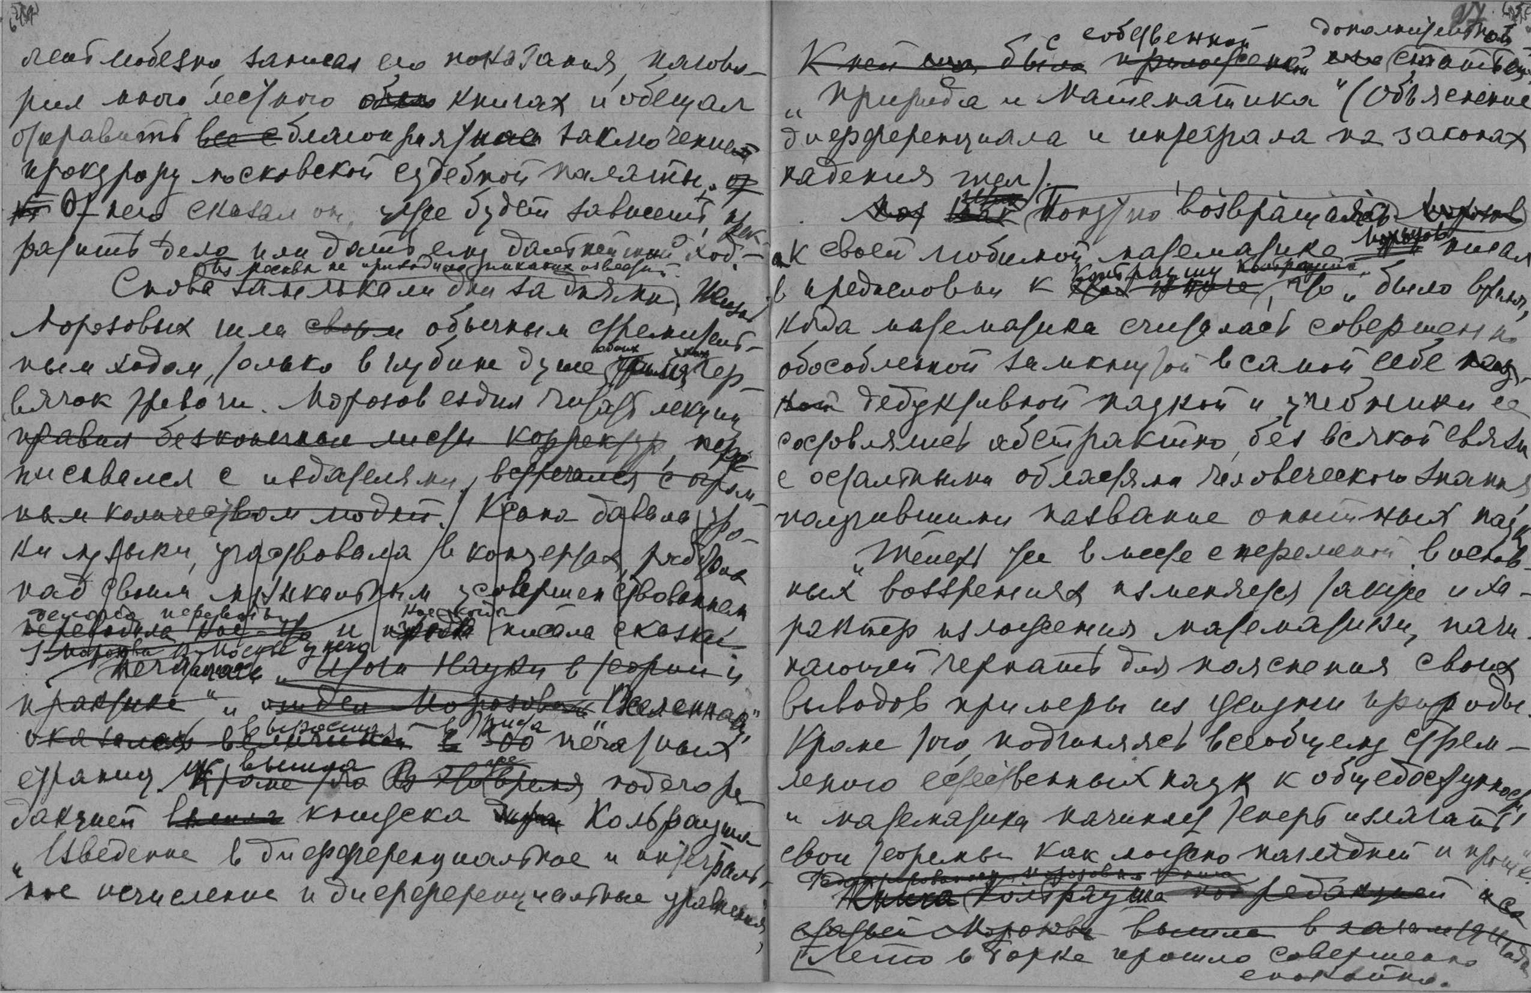 лент любезно записал его показания, нагово-
рил много лестного о его книгах и обещал
отправить все с благоприятное заключением
прокурору московской судебной палаты. от
От него сказал он, уже будет зависеть, прек-
ратить дело или дать ему дальнейший ход.
Из Москвы не приходило никаких известий
Снова замелькали дни за днями. Жизнь
Морозовых шла обычным стремитель-
ным ходом, только в глубине души
обоих
чер-
вячок тревоги. Морозов ездил читать лекции
правил бесконечные листы корректур, пере-
писывался с издателями, встречался с огром-
ным количеством людей. Ксана давала уро-
ки музыки, участвовала в концертах, работала
над своим музыкальным усовершенствованием
делала переводы
переводила кое-что и писала сказки.
печатались „Итоги Науки в теории и
практике" и отдел Морозова „Вселенная"
оказался величиной в 500 печатных
страниц. Кроме того В это время под его ре-
дакцией вышла книжка Кольрауша
„Введение в дифференциальное и интеграль-
ное исчисление и дифференциальные уравнения",
с собственной дополнительной
К ней была приложена статьей
„Природа и математика" (Объяснение
дифференциала и интеграла на законах
падения тел).
Попутно возвращаясь Морозов
к своей любимой математике
Морозов
писал
в предисловии к
Кольраушу
что „было время,
когда математика считалась совершенно
обособленной замкнутой в самой себе
дедуктивной наукой и учебники ее
составлялись абстрактно, без всякой связи
с остальными областями человеческого знания
получившими название опытных наук
„Теперь же вместе с переменой в основ-
ных воззрениях изменяется также и ха-
рактер изложения математики, начи-
нающей черпать для пояснения своих
выводов примеры из жизни природы.
Кроме того, подчиняясь всеобщему стрем-
лению естественных наук к общедоступности
и математика начинает теперь излагать
свои теоремы как можно наглядней и проще".
Редактированная Морозовым книга
Книга Кольрауша под редакцией и со
статьей Морозова вышла в
Лето в Борке прошло совершенно
спокойно.